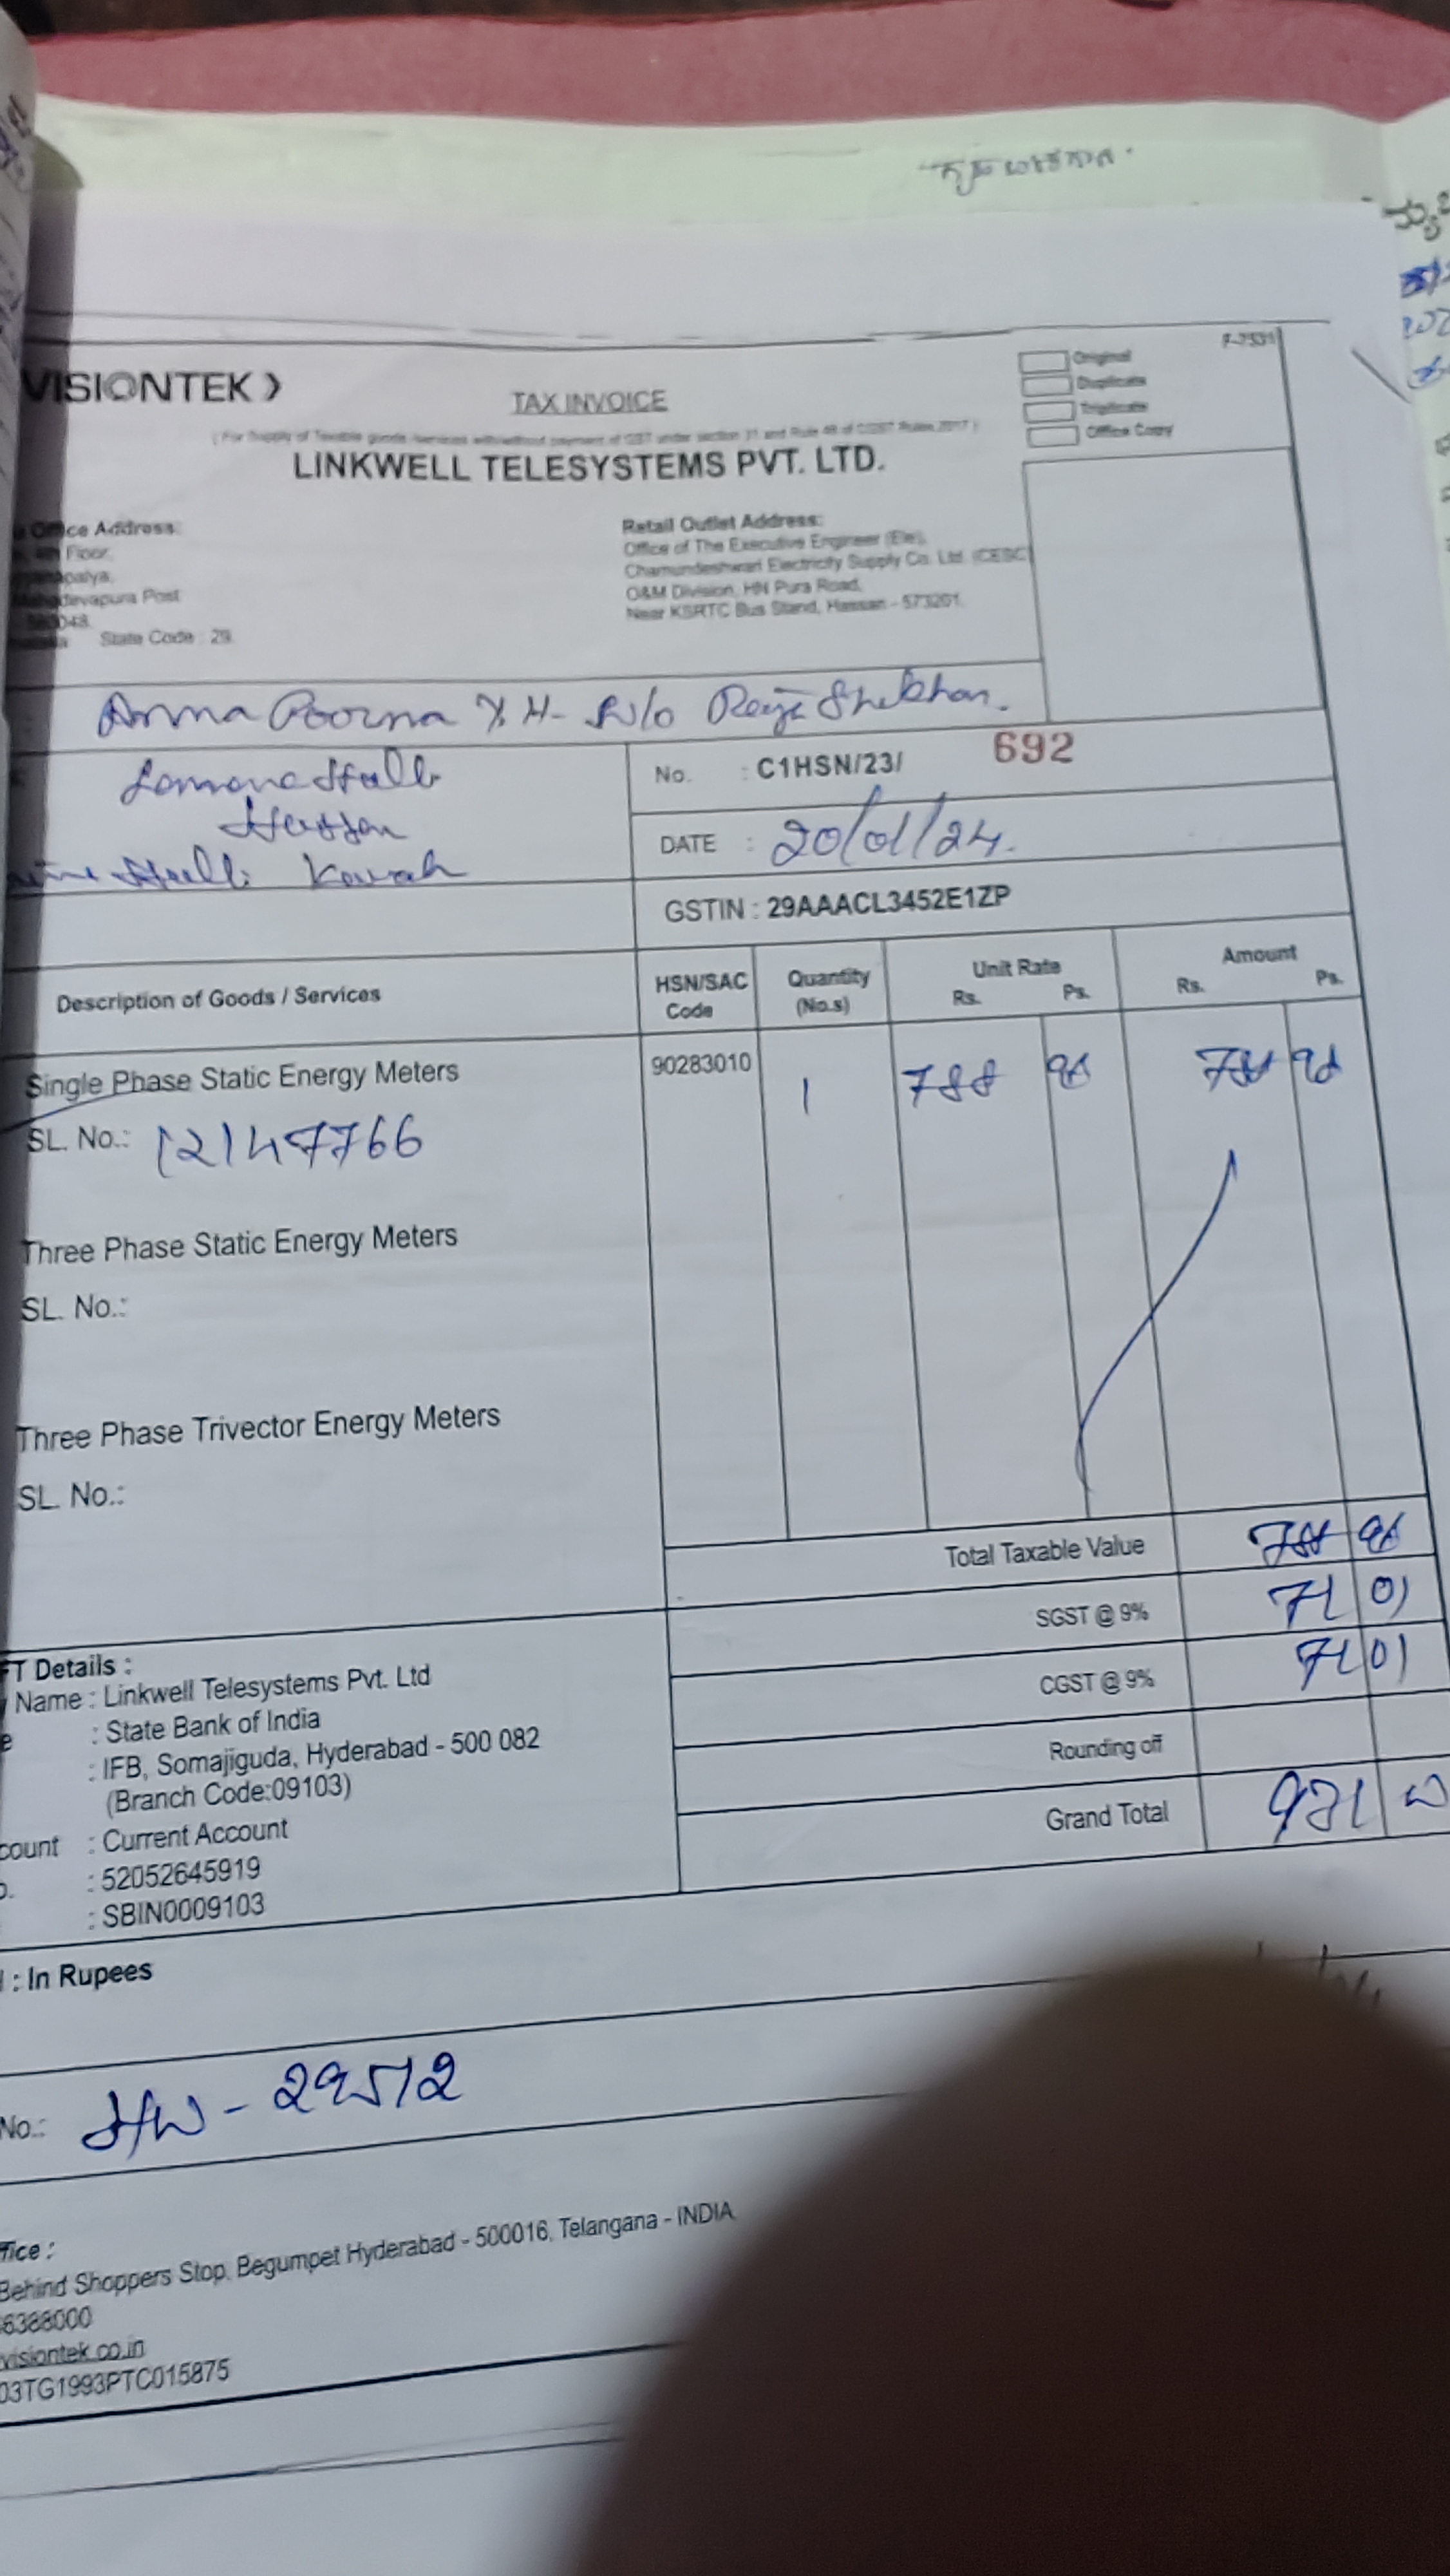 VISIONTEK
TAX INVOICE
F-7531
Original
Duplicate
Triplicate
Office Copy
(For Supply of Taxable goods /services with/without payment of GST under section 31 and Rule 46 of CGST Rules 2017)
LINKWELL TELESYSTEMS PVT. LTD.
Office Address:
4th Floor,
State Code : 29.
Retail Outlet Address:
Office of The Executive Engineer (Ele),
Chamundeshwari Electricity Supply Co. Ltd. (CESC)
O&M Division, HN Pura Road,
Near KSRTC Bus Stand, Hassan - 573201.
Anna Poorna Y. H- W/o Raja Shekhar.
Hassan
No. : C1HSN/23/ 692
DATE : 20/01/24.
GSTIN : 29AAACL3452E1ZP
Description of Goods / Services HSN/SAC Code Quantity (No.s) Unit Rate Rs. Ps. Amount Rs. Ps.
Single Phase Static Energy Meters 90283010 1 788 98 788 98
SL. No.: 12147766
Three Phase Static Energy Meters
SL. No.:
Three Phase Trivector Energy Meters
SL. No.:
Total Taxable Value 788 98
SGST @ 9% 71 01
CGST @ 9% 71 01
Rounding off
Grand Total 931 00
FT Details :
Name : Linkwell Telesystems Pvt. Ltd
: State Bank of India
: IFB, Somajiguda, Hyderabad - 500 082
(Branch Code:09103)
count : Current Account
: 52052645919
: SBIN0009103
: In Rupees
No.: HW - 29512
fice :
Behind Shoppers Stop, Begumpet Hyderabad - 500016, Telangana - INDIA
6388000
visiontek.co.in
03TG1993PTC015875